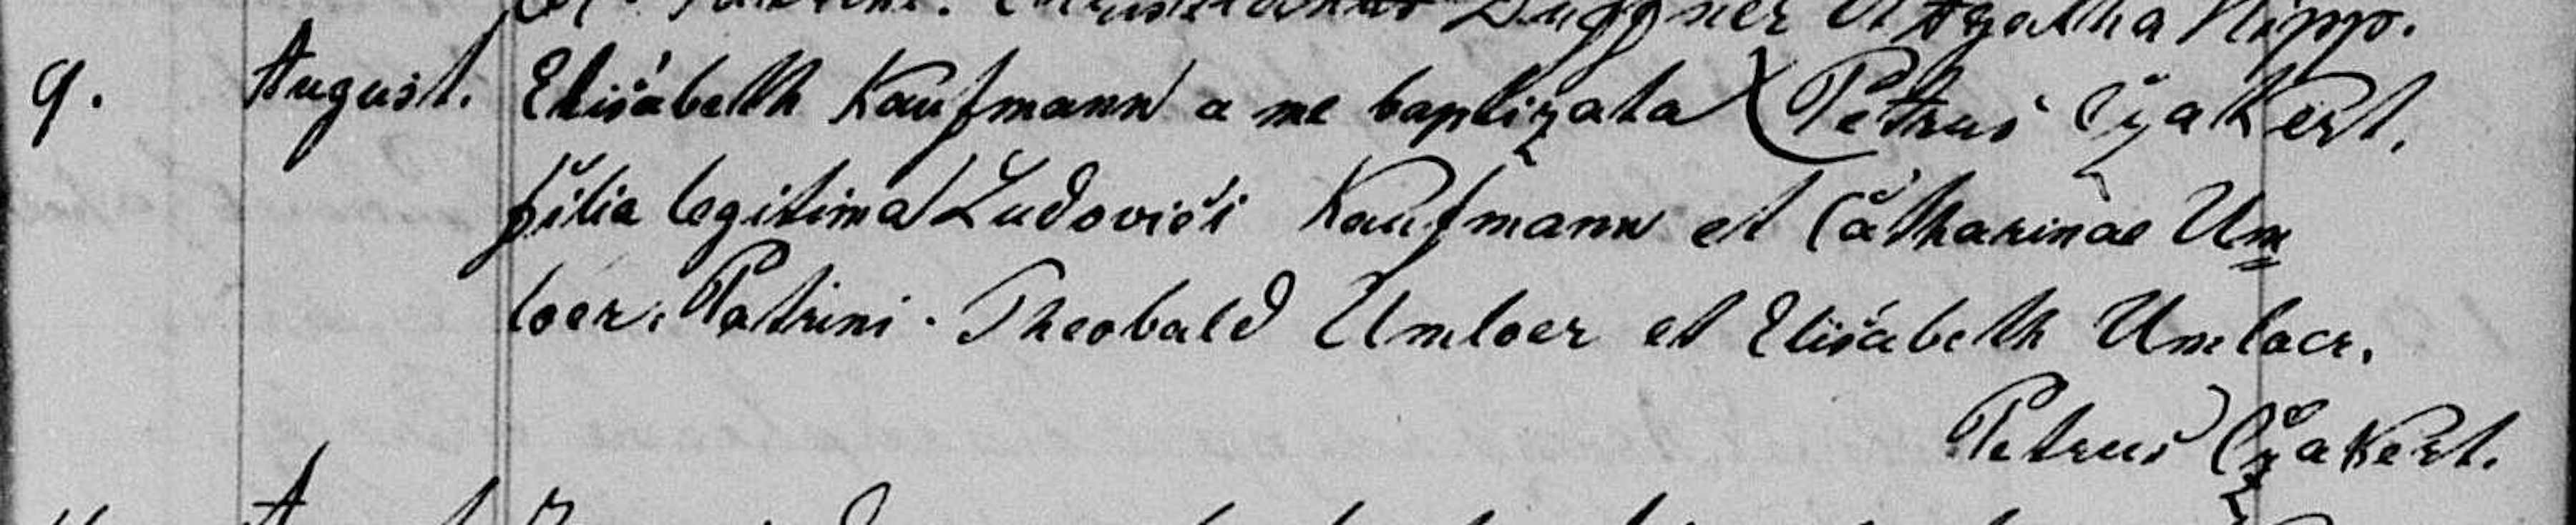 Duffner et Agatha Nipp.
9. August. Elisabeth Kaufmann a me baptizata (Petrus Czakert.
filia legitima Ludovici Kaufmann et Catharinae Um=
loer. Patrini. Theobald Umloer et Elisabeth Umloer.
Petrus Czakert.